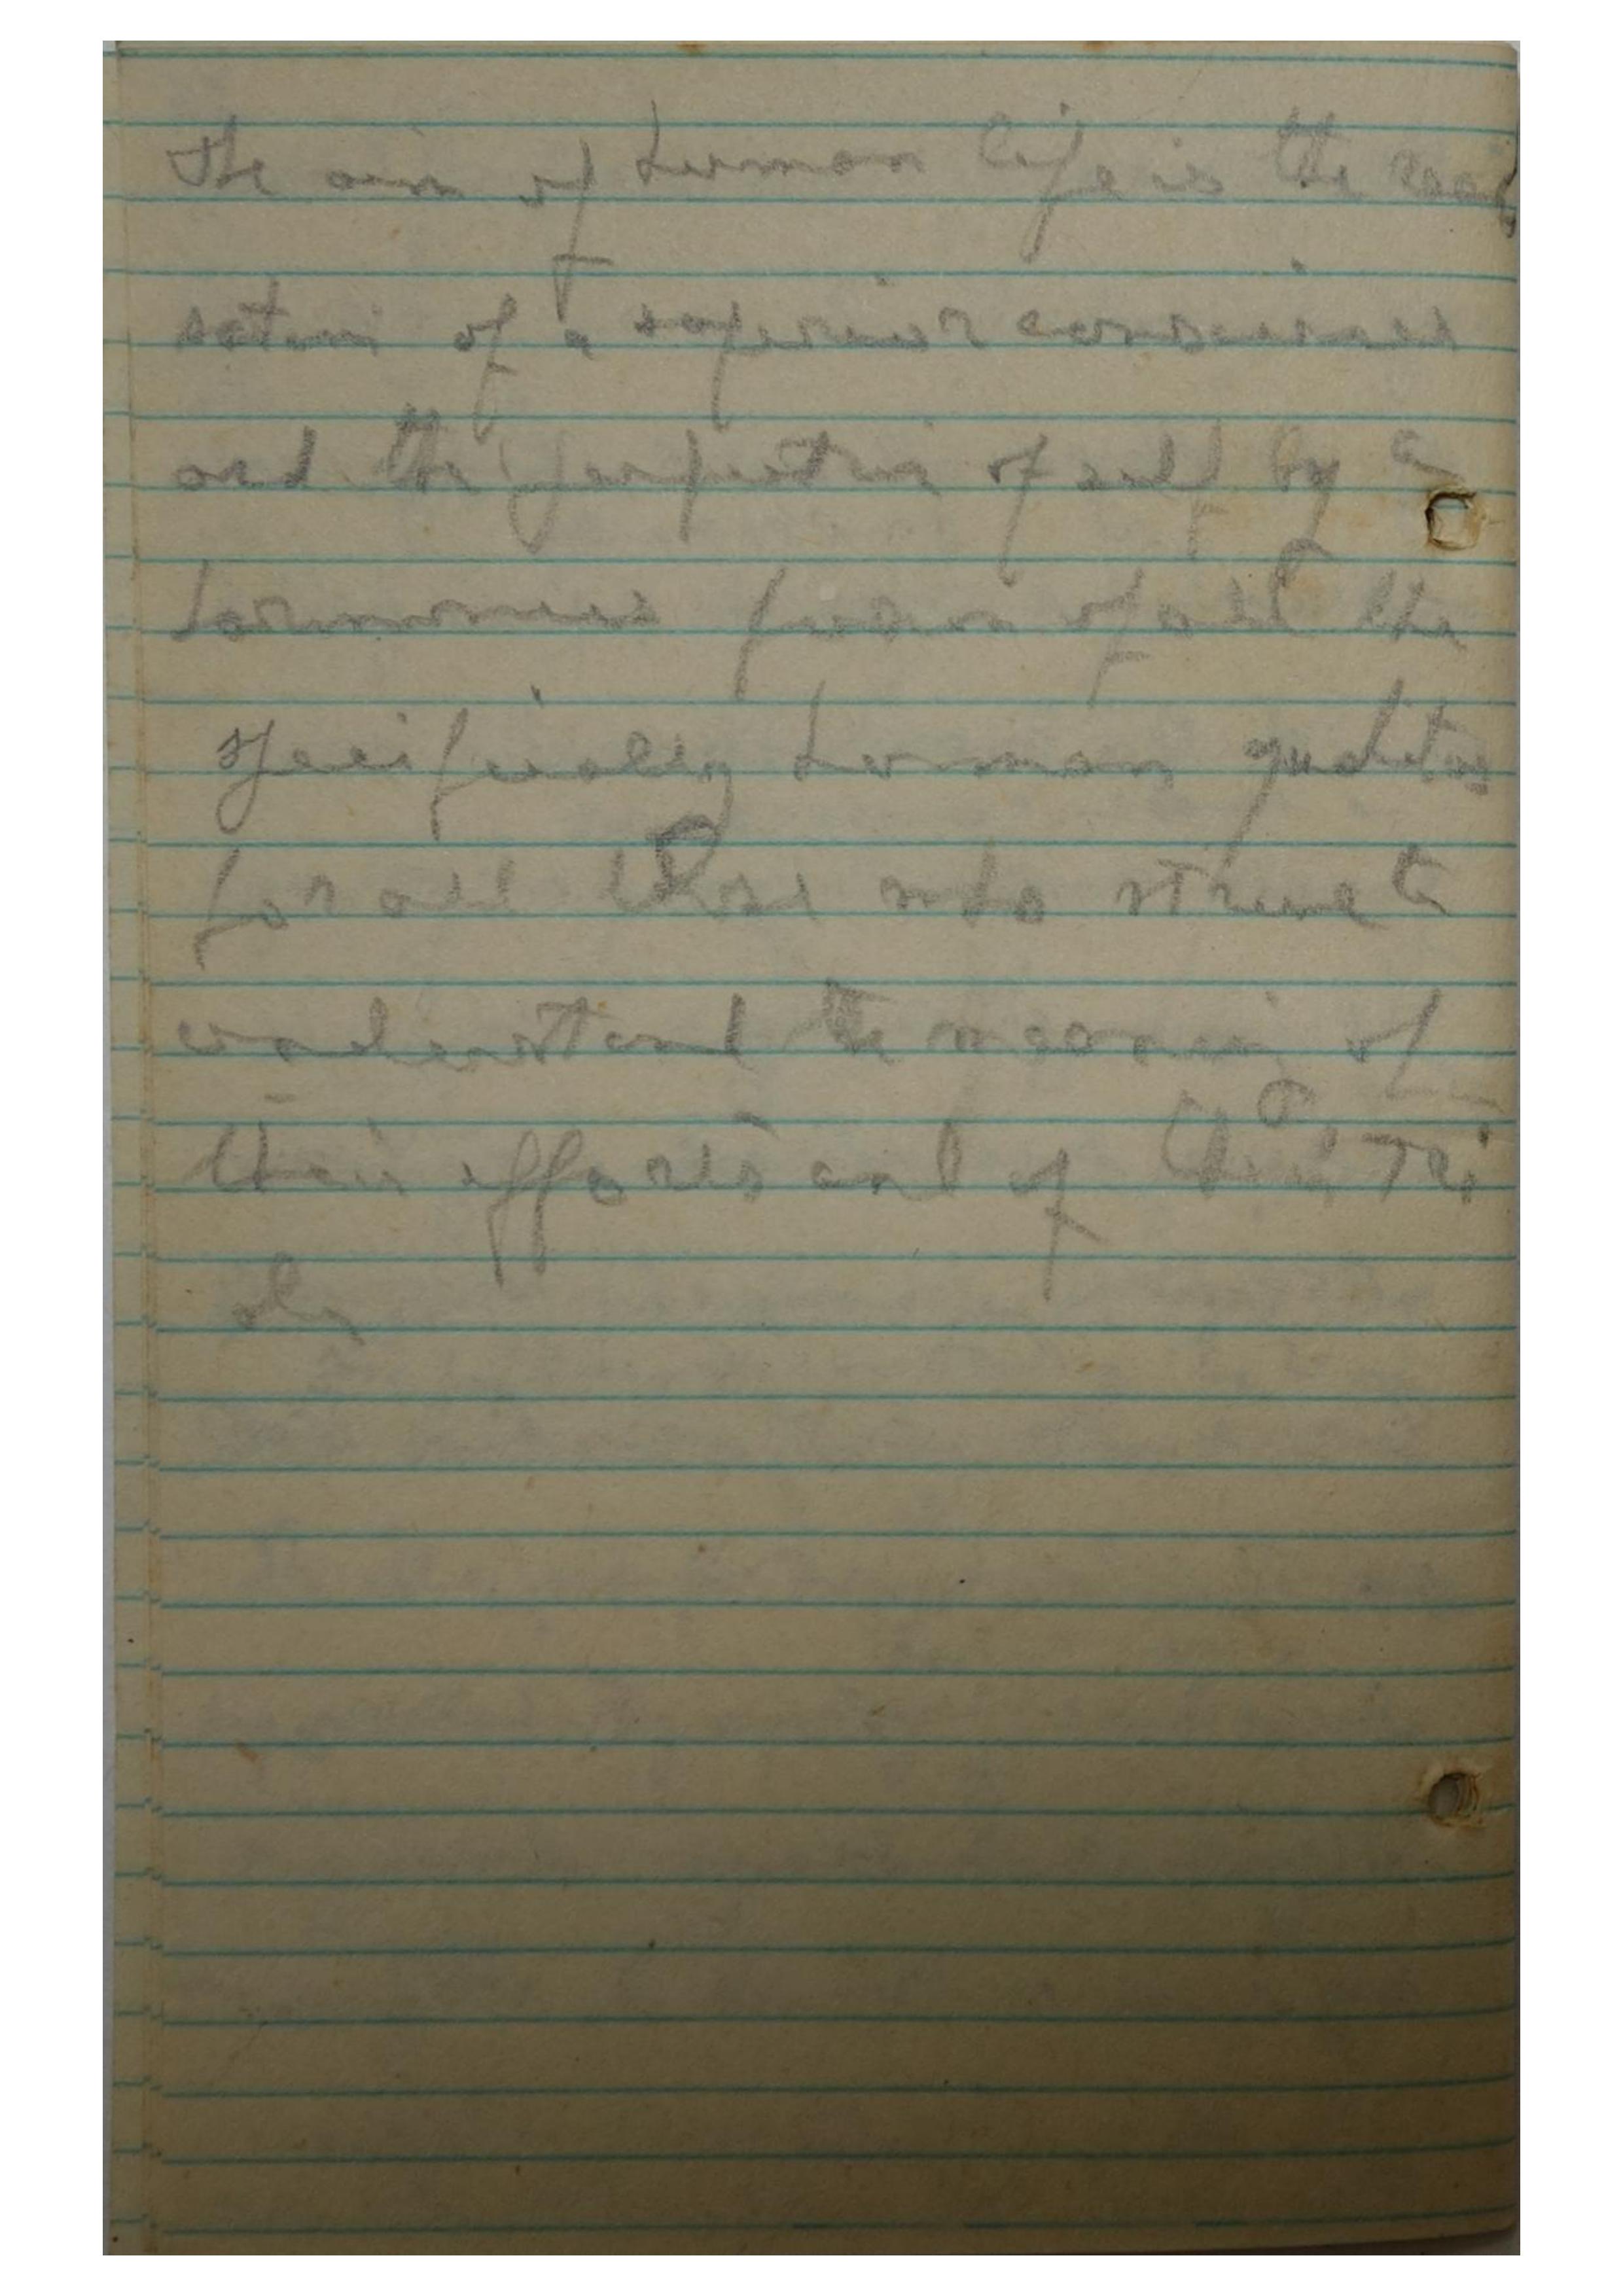 The aim of human life is the reali
sation of a superior consciousness
and the perfection of self by a
harmonious fusion of all the
specifically human qualities
for all those who strive to
understand the meaning of
their efforts and of their tri
als